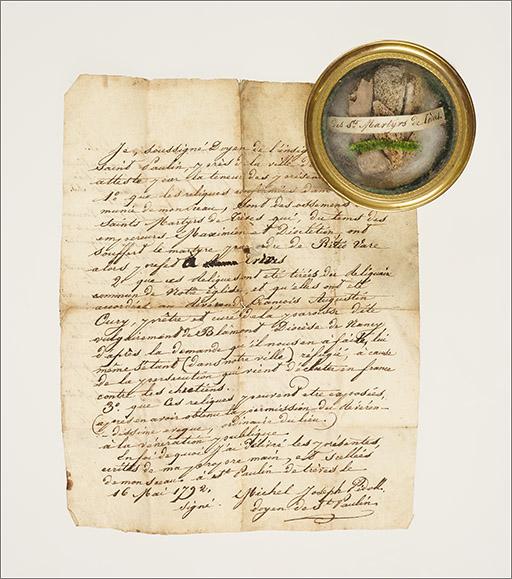 des Sts Martyrs de Trèv.
Je, soussigné Doyen de l'insig
Saint Paulin, près de la ville d
atteste par la teneur des présen
1º que les reliques dans
munie de mon sceau, sont des ossemens
Saints Martyrs de Trèves qui, du tems des
empereurs Maximien et Dioclétien, ont
souffert le martyre par ordre de Rictio Vare
alors préfet à Trèves
2º que ces Reliques ont été tirées du reliquaire
commun de Notre Eglise, et qu'elles ont été
accordées au révérend François Augustin
Cuny, prêtre et curé de la paroisse dite
vulgairement de Blâmont Diocèse de Nancy
d'après la demande qu'il nous en a faite, lui
même s'étant (dans notre ville) réfugié, à cause
de la persécution qui vient d'éclater en france
contre les chrétiens.
3º que ces reliques peuvent être exposées,
(après en avoir obtenu la permission du révéren-
dissime evêque, ordinaire du lieu)
à la vénération publique.
En foi de quoi j'ai délivré les présentes,
écrites de ma propre main, et scellées
de mon sceau à St Paulin de trèves le
16 Mai 1792.
signé. Michel Joseph
doyen de St Paulin